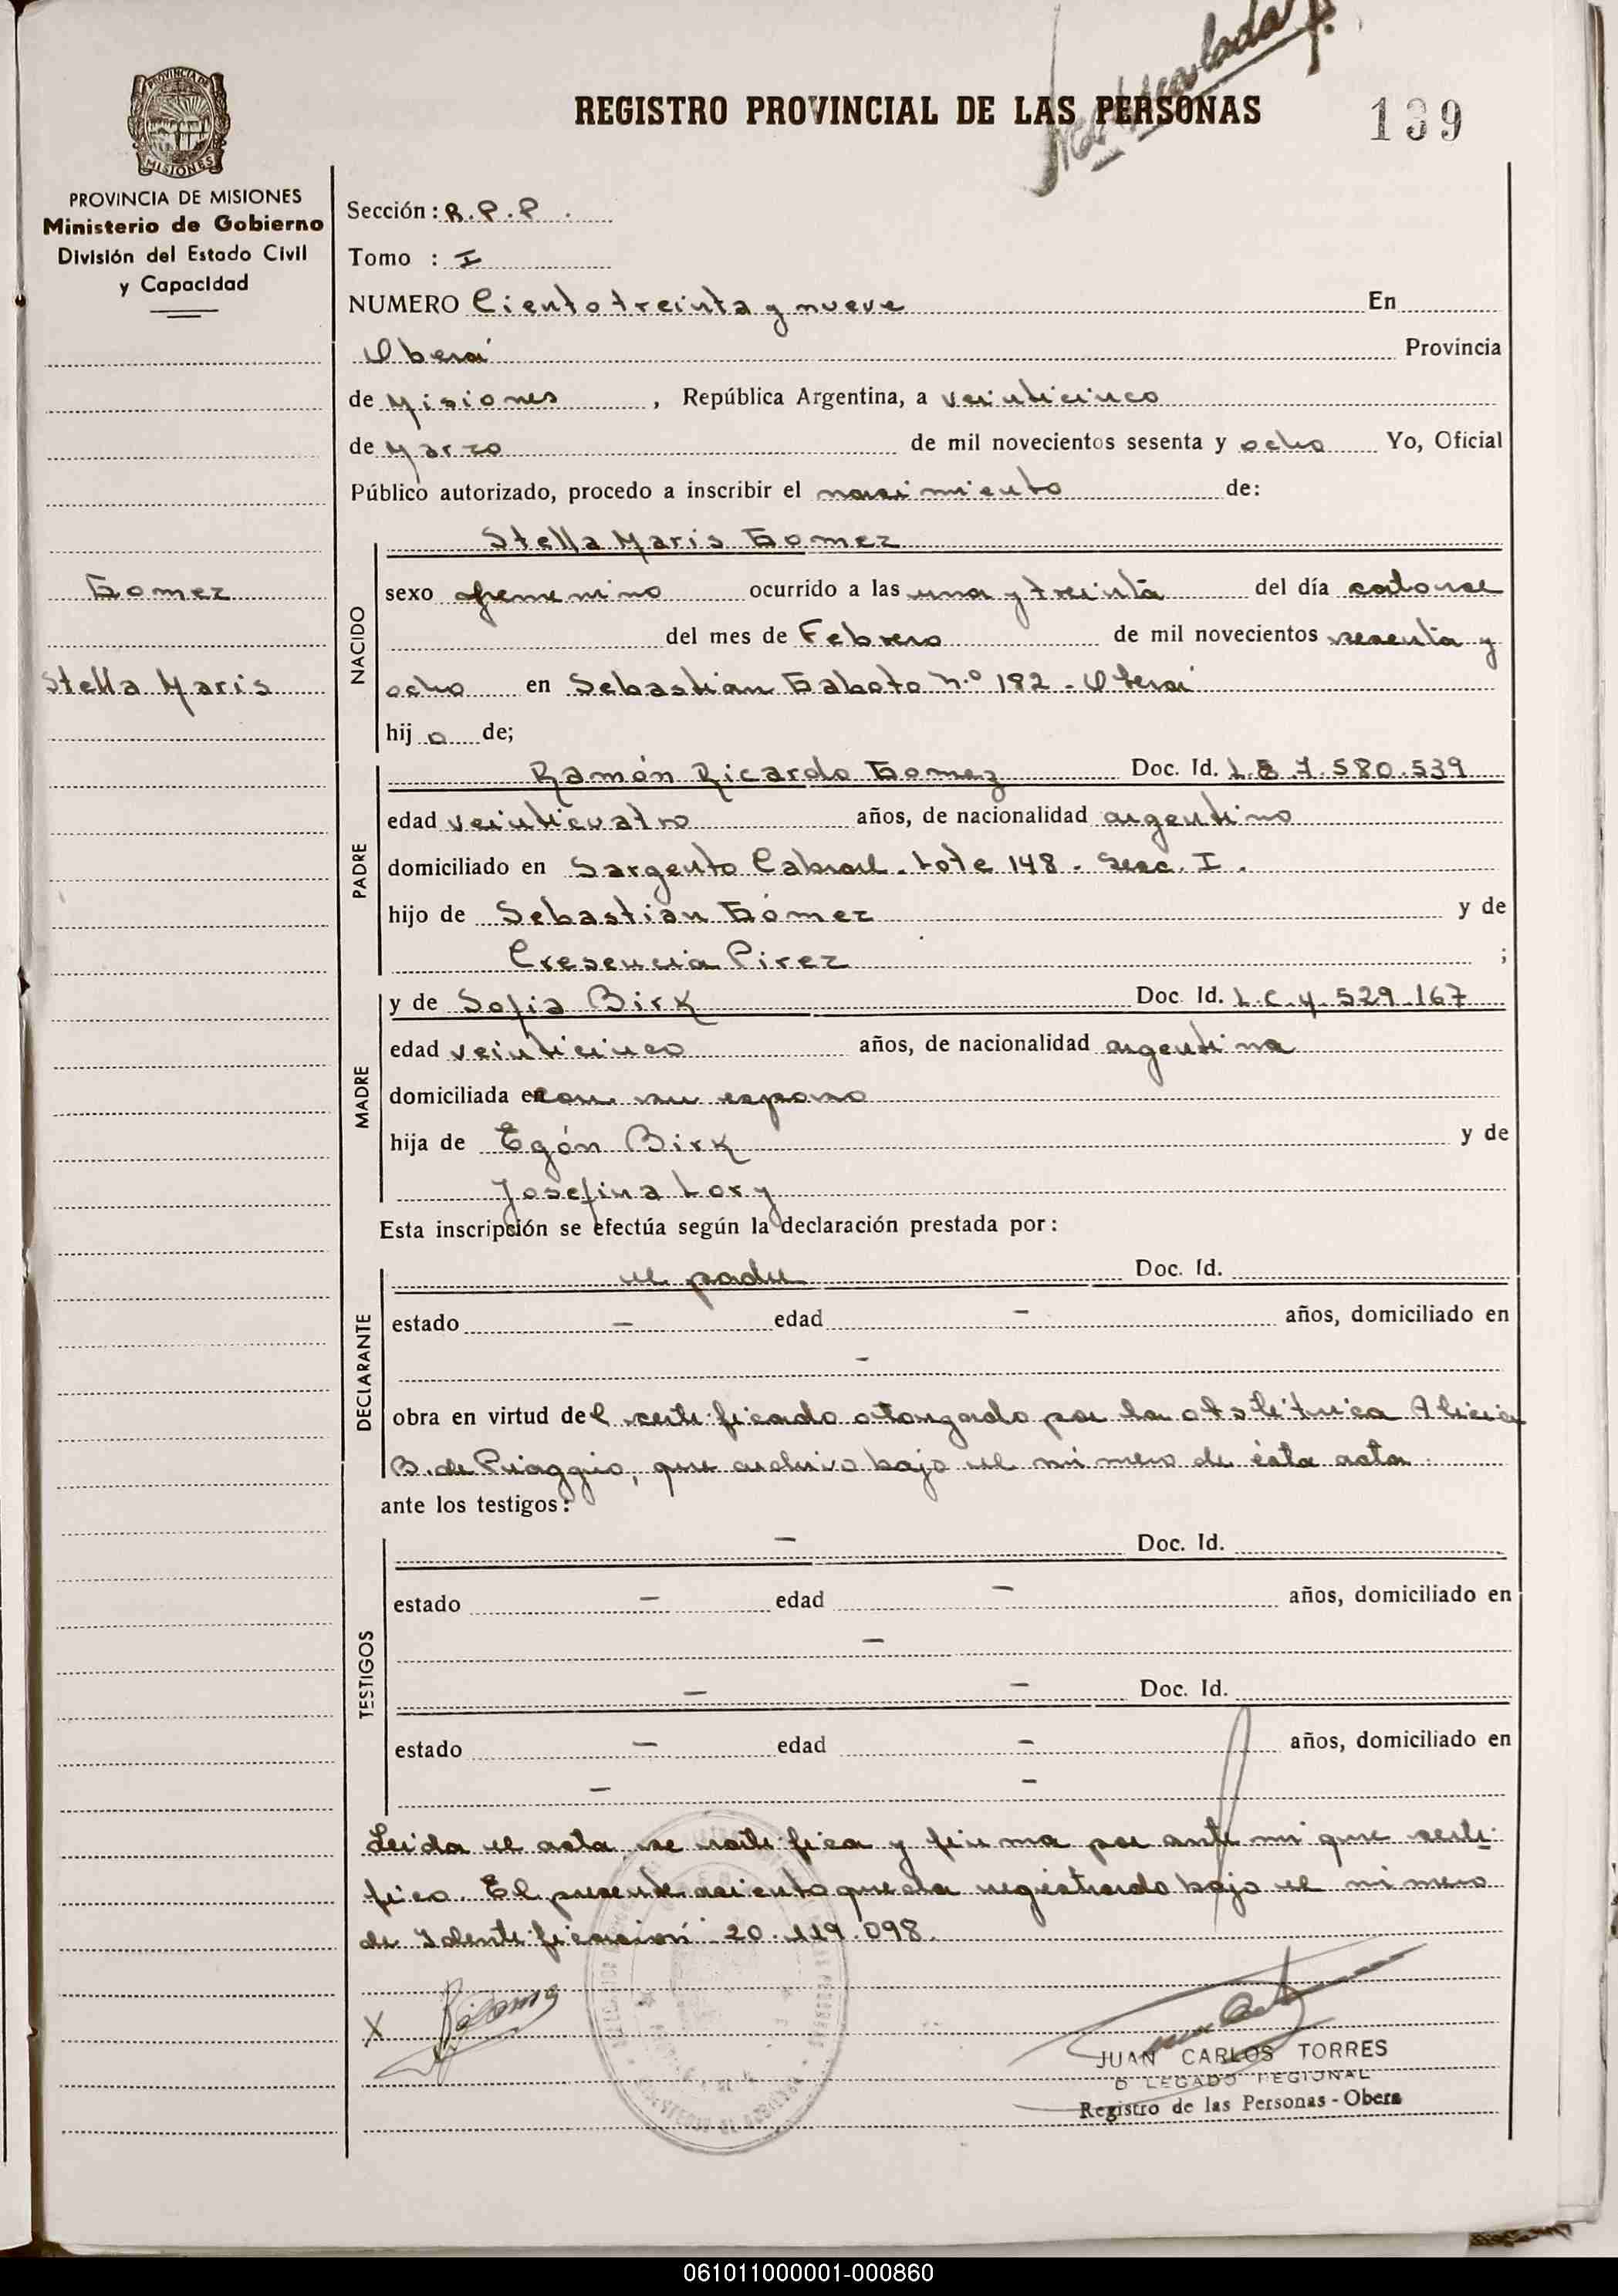 REGISTRO PROVINCIAL DE LAS PERSONAS
139
PROVINCIA DE
MISIONES
PROVINCIA DE MISIONES
Ministerio de Gobierno
División del Estado Civil
y Capacidad
Sección: R.P.P.
Tomo : I
NUMERO Ciento treinta y nueve En
Oberá Provincia
de Misiones, República Argentina, a veinticinco
de Marzo de mil novecientos sesenta y ocho Yo, Oficial
Público autorizado, procedo a inscribir el nacimiento de:
Stella Maris Gomez
Gomez
Stella Maris
NACIDO
sexo femenino ocurrido a las una y treinta del día catorce
del mes de Febrero de mil novecientos sesenta y
ocho en Sebastian Gaboto N.º 182 - Oberá
hij a de;
PADRE
Ramón Ricardo Gomez Doc. Id. L.E 7.580.539
edad veinticuatro años, de nacionalidad argentino
domiciliado en Sargento Cabral. Lote 148 - Secc. I.
hijo de Sebastian Gómez y de
Cresencia Pirez ;
MADRE
y de Sofia Birk Doc. Id. L.C.4.529.167
edad veinticinco años, de nacionalidad argentina
domiciliada en con su esposo
hija de Egón Birk y de
Josefina Lory
Esta inscripción se efectúa según la declaración prestada por:
DECLARANTE
el padre Doc. Id.
estado — edad — años, domiciliado en
-
obra en virtud del certificado otorgado por la obstétrica Alicia
B. de Priaggio, que archivo bajo el número de ésta acta.
ante los testigos:
TESTIGOS
— Doc. Id.
estado — edad — años, domiciliado en
—
— — Doc. Id.
estado — edad — años, domiciliado en
— —
Leida el acta, se ratifica y firma por ante mi que certi-
fico. El presente asiento queda registrado bajo el número
de Identificación 20.119.098.
X
JUAN CARLOS TORRES
D LEGADO REGIONAL
Registro de las Personas - Obera
061011000001-000860